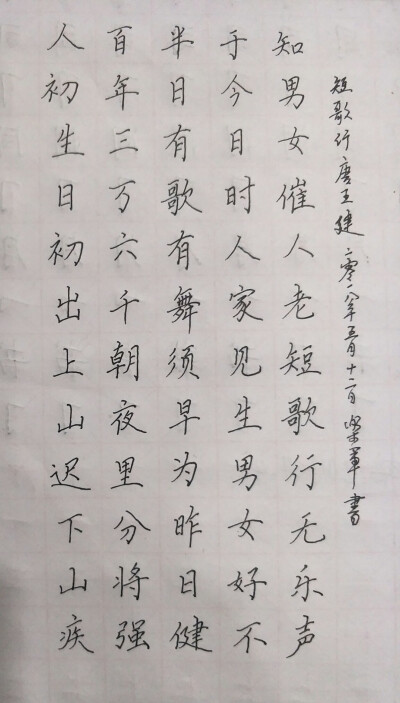 人初生日初出上山迟下山疾
百年三万六千朝夜里分将强
半日有歌有舞须早为昨日健
于今日时人家见生男女好不
知男女催人老短歌行无乐声
短歌行唐王健二零一八年五月十二日軍書